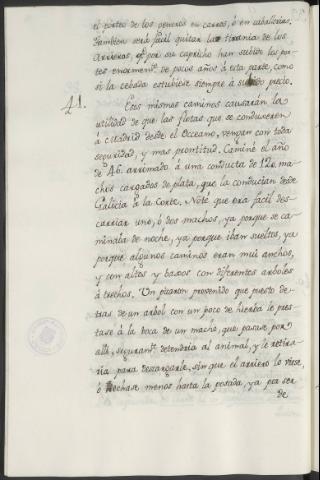 el porteo de los generos en carros, ó en caballerias.
Tambien será facil quitar la tirania de los
Arrieros, qe. por su capricho han subido los por-
tes enormemte. de pocos años á esta parte, como
si la cebada estubiese siempre á subido precio.
41. Estos mismos caminos causarán la
utilidad de que las flotas que se conduxeren
á Madrid desde el Oceano, vengan con toda
seguridad, y mas prontitud. Caminé el año
de 46. arrimado á una conducta de 120. ma-
chos cargados de plata, que la conducian desde
Galicia á la Corte. Noté que era facil des-
carriar uno, ó dos machos, ya porque se ca-
minaba de noche, ya porque iban sueltos, ya
porque algunos caminos eran mui anchos,
y con altos y baxos con diferentes arboles
á trechos. Un picaron prevenido que puesto de-
tras de un arbol con un poco de hierba le pres-
tase á la boca de un macho, que pasase por
alli, seguramte. detendria al animal, y le retira-
ria para descargarle, sin que el arriero lo viese,
ó hechase menos hasta la posada, ya por ser
de